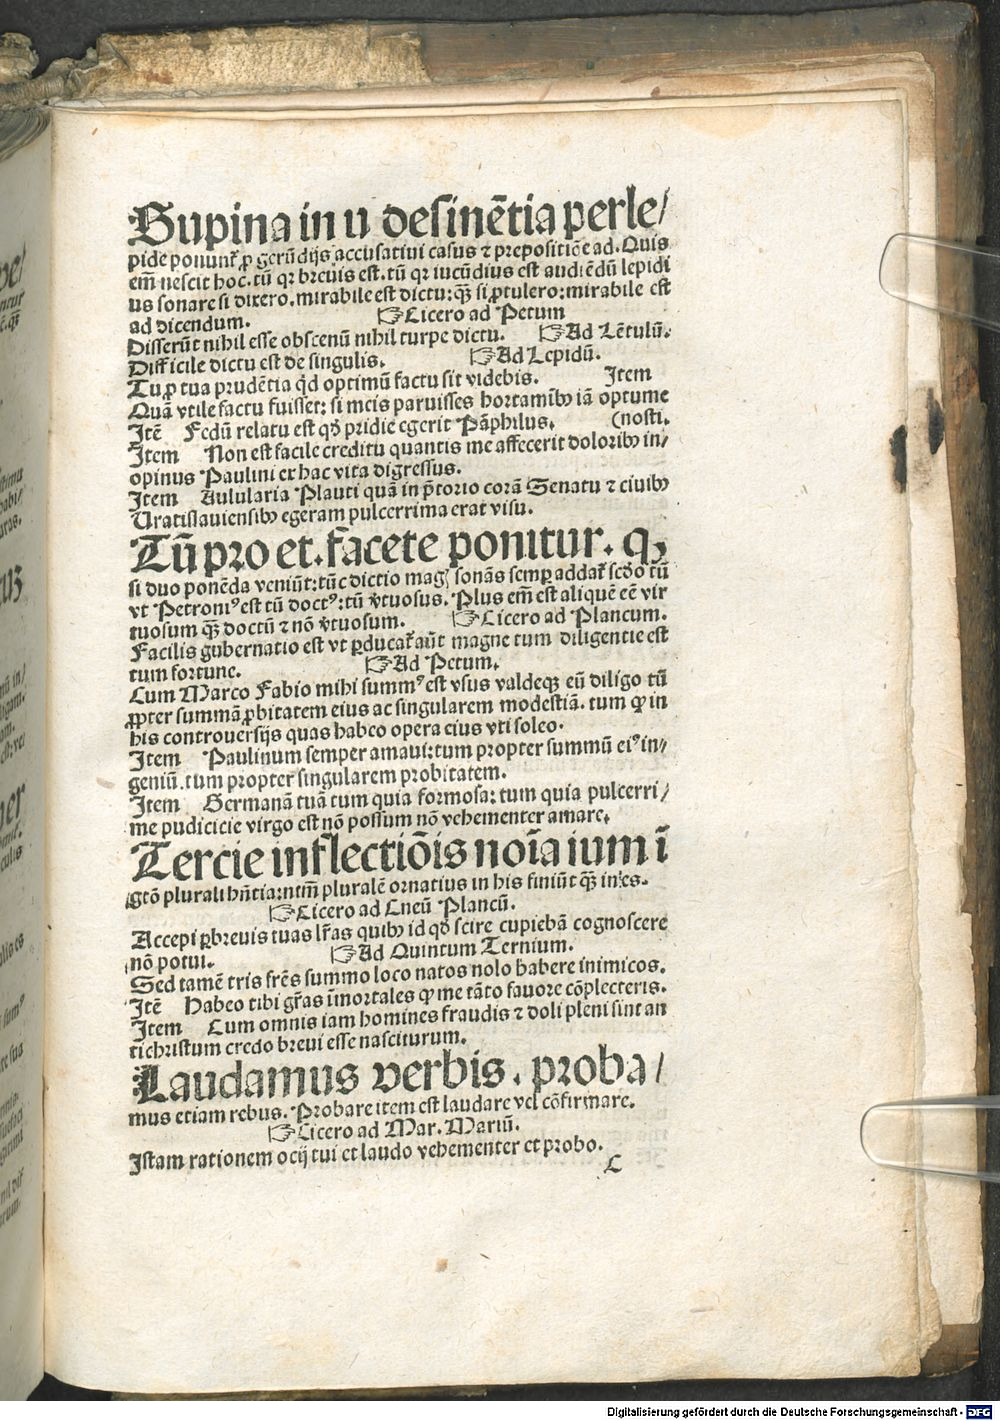 Supina in u desinētia perle/
pide ponunt᷑ ꝓ gerūdijs accusatiui casus ⁊ prepositiōe ad. Quis
em̄ nescit hoc. tū qꝛ breuis est. tū qꝛ iucūdius est audiēdū lepidi
us sonare si dixero. mirabile est dictu: qᷓꝫ si ꝓtulero: mirabile est
ad dicendum. ☞Cicero ad Petum
Disserūt nihil esse obscenū nihil turpe dictu. ☞Ad Lētulū.
Difficile dictu est de singulis. ☞Ad Lepidū.
Tu ꝓ tua prudētia qd̄ optimū factu sit videbis. Item
Quā vtile factu fuisset: si meis paruisses hortamibꝫ iā optume
Itē Fedū relatu est qd̄ pridie egerit Pāphilus. (nosti.
Item Non est facile creditu quantis me affecerit doloribꝫ in/
opinus Paulini ex hac vita digressus.
Item Aulularia Plauti quā in p̄torio corā Senatu ⁊ ciuibꝫ
Uratislauiensibꝫ egeram pulcerrima erat visu.
Tū pro et. facete ponitur. qꝫ
si duo ponēda veniūt: tūc dictio magꝭ sonās semꝑ addat᷑ scd̄o tū
vt Petroniꝰ est tū doctꝰ: tū v̄tuosus. Plus em̄ est aliquē eē vir
tuosum qᷓꝫ doctū ⁊ nō v̄tuosum. ☞Cicero ad Plancum.
Facilis gubernatio est vt ꝑducat᷑ aūt magne tum diligentie est
tum fortune. ☞Ad Petum.
Cum Marco Fabio mihi summꝰ est vsus valdeqꝫ eū diligo tū
ꝓpter summā ꝓbitatem eius ac singularem modestiā. tum ꝙ in
his controuersijs quas habeo opera eius vti soleo.
Item Paulinum semper amaui: tum propter summū eiꝰ in/
geniū. tum propter singularem probitatem.
Item Germanā tuā tum quia formosa: tum quia pulcerri/
me pudicicie virgo est nō possum nō vehementer amare.
Tercie inflectiōis noīa ium ī
gtō plurali hn̄tia: ntm̄ pluralē ornatius in his finiūt qᷓꝫ in es.
☞Cicero ad Cneū Plancū.
Accepi ꝑbreuis tuas lr̄as quibꝫ id qd̄ scire cupiebā cognoscere
nō potui. ☞Ad Quintum Ternium.
Sed tamē tris frēs summo loco natos nolo habere inimicos.
Itē Habeo tibi gr̄as īmortales ꝙ me tāto fauore cōplecteris.
Item Cum omnis iam homines fraudis ⁊ doli pleni sint an
tichristum credo breui esse nasciturum.
Laudamus verbis. proba/
mus etiam rebus. Probare item est laudare vel cōfirmare.
☞Cicero ad Mar. Mariū.
Istam rationem ocij tui et laudo vehementer et probo.
C
Digitalisierung gefördert durch die Deutsche Forschungsgemeinschaft - DFG